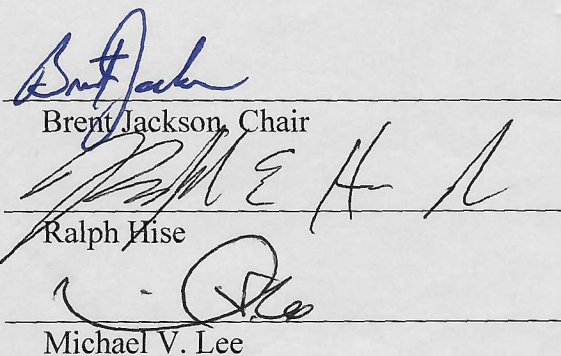 Brent Jackson
Brent Jackson, Chair
Ralph E Hise
Ralph Hise
Michael V. Lee